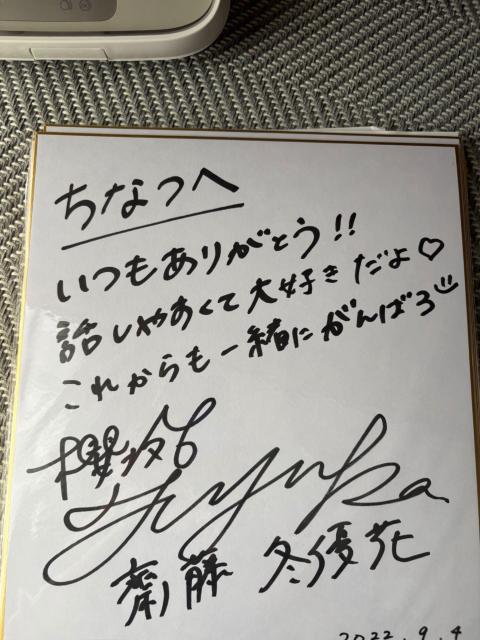 ちなつへ
いつもありがとう!!
話しやすくて大好きだよ♡
これからも一緒にがんばろ
櫻坂46
Fuyuka
齋藤 冬優花
2022.9.4